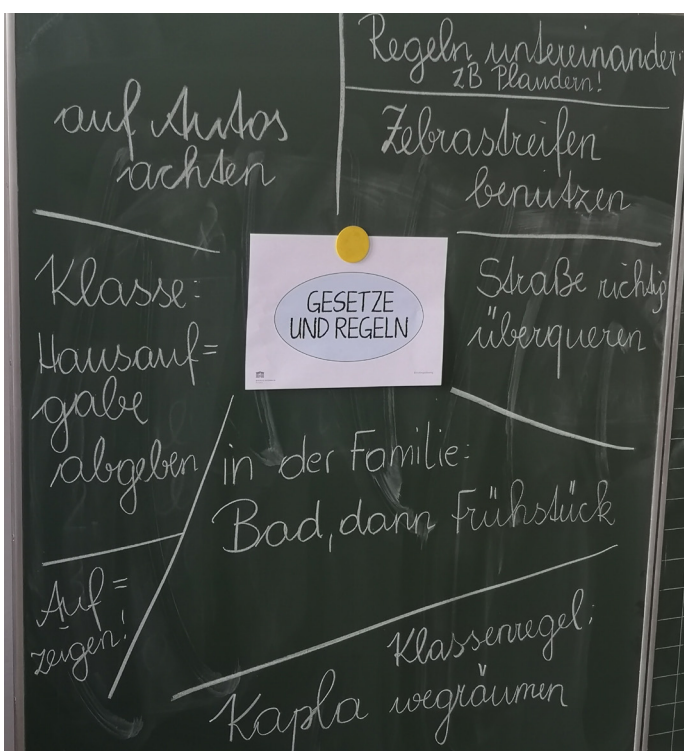 Regeln untereinander
zB Plaudern!
auf Autos
achten
Zebrastreifen
benützen
GESETZE
UND REGELN
Straße richtig
überqueren
Klasse:
Hausauf=
gabe
abgeben
in der Familie:
Bad, dann Frühstück
Auf=
zeigen!
Klassenregel:
Kapla wegräumen